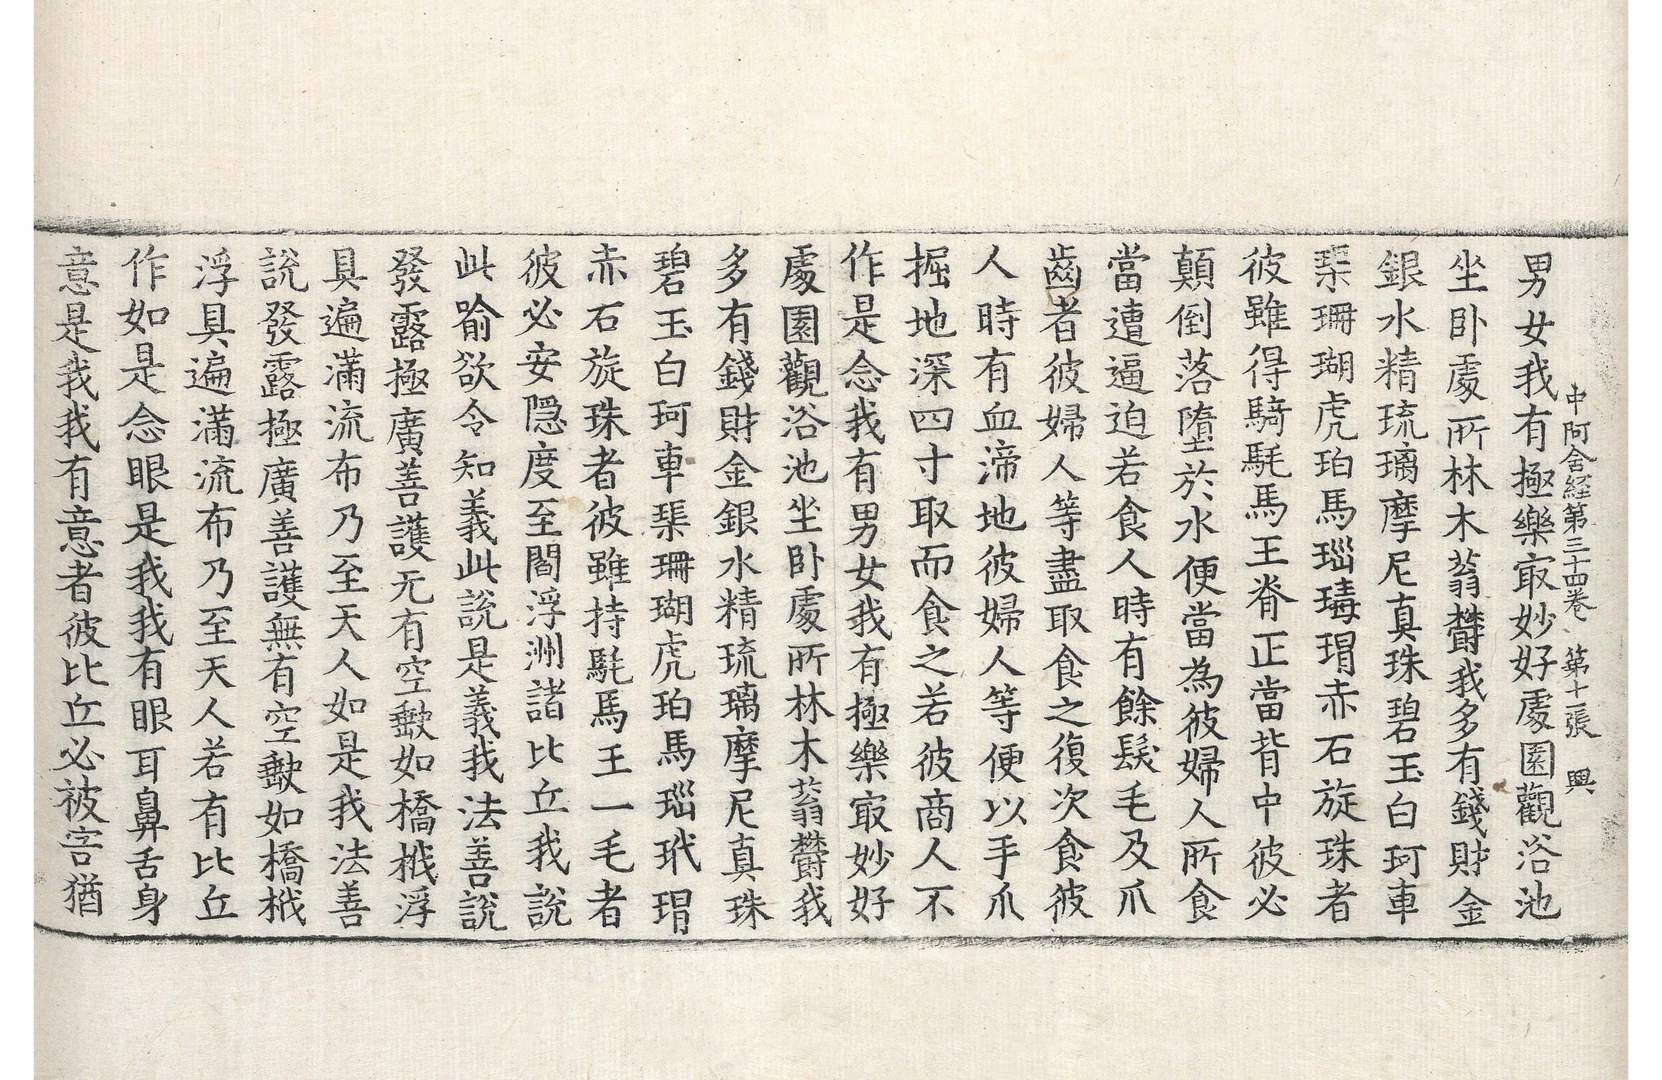 中阿含経第三十四卷 第十一張 興
男女我有極樂㝡妙好處園觀浴池
坐卧處所林木蓊欝我多有錢財金
銀水精琉璃摩尼真珠碧玉白珂車
璖珊瑚虎珀馬瑙瑇瑁赤石旋珠者
彼雖得騎駹馬王脊正當背中彼必
顛倒落墮於水便當為彼婦人所食
當遭逼迫若食人時有餘髮毛及爪
齒者彼婦人等盡取食之復次食彼
人時有血渧地彼婦人等便以手爪
掘地深四寸取而食之若彼商人不
作是念我有男女我有極樂㝡妙好
處園觀浴池坐卧處所林木蓊欝我
多有錢財金銀水精琉璃摩尼真珠
碧玉白珂車璖珊瑚虎珀馬瑙玳瑁
赤石旋珠者彼雖持駹馬王一毛者
彼必安隱度至閻浮洲諸比丘我說
此喻欲令知義此說是義我法善說
發露極廣善護无有空缺如橋栰浮
具遍滿流布乃至天人如是我法善
說發露極廣善護無有空缺如橋栰
浮具遍滿流布乃至天人若有比丘
作如是念眼是我我有眼耳鼻舌身
意是我我有意者彼比丘必被害猶